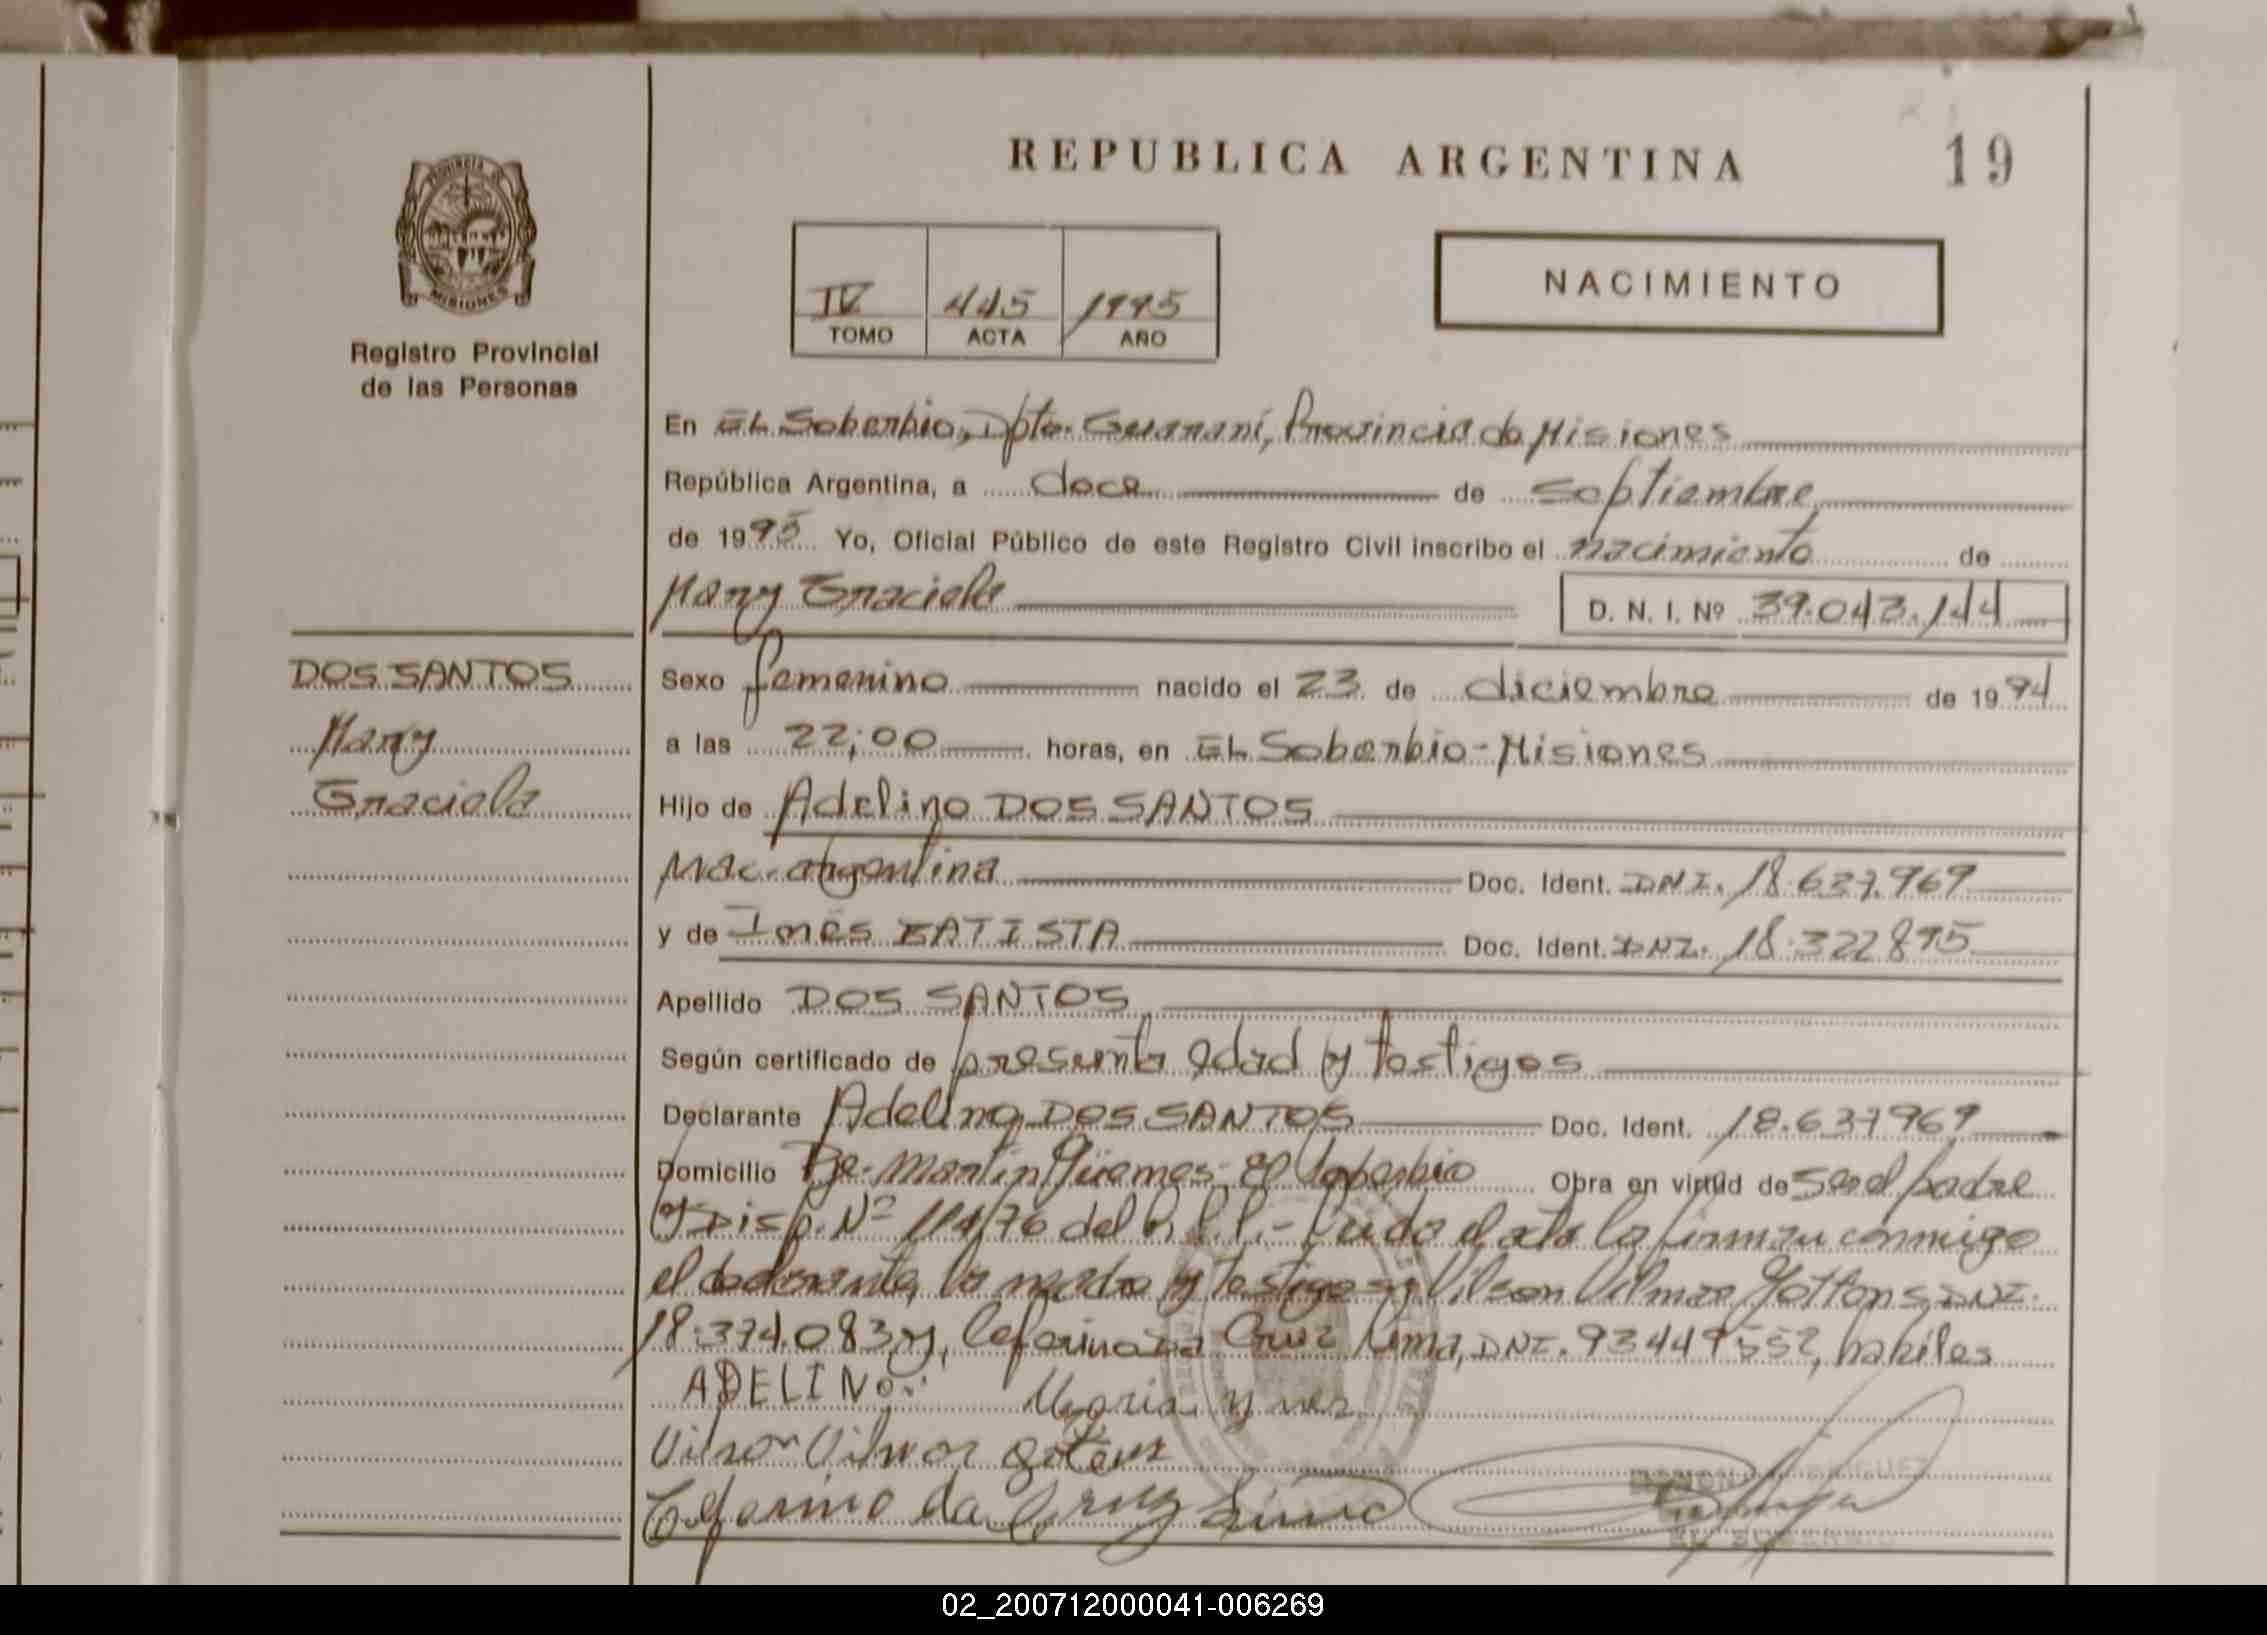 REPUBLICA ARGENTINA
19
PROVINCIA DE
MISIONES
Registro Provincial
de las Personas
IV 445 1995
TOMO ACTA AÑO
NACIMIENTO
En El Soberbio, Dpto. Guaraní, Provincia de Misiones
República Argentina, a doce de septiembre
de 1995 Yo, Oficial Público de este Registro Civil inscribo el nacimiento de
Mary Graciela D. N. I. Nº 39.043.144
DOS SANTOS
Mary
Graciela
Sexo femenino nacido el 23 de diciembre de 1994
a las 22;00 horas, en El Soberbio-Misiones
Hijo de Adelino DOS SANTOS
Nac. argentina Doc. Ident. DNI. 18.637.969
y de Inés BATISTA Doc. Ident. DNI. 18.322895
Apellido DOS SANTOS
Según certificado de presunta edad y testigos
Declarante Adelino DOS SANTOS Doc. Ident. 18.637969
Domicilio Bº Martín Güemes- El Soberbio Obra en virtud de ser el padre
y Disp. Nº 114/76 del R.P.P.- Leida el acta la firman conmigo
el declarante, la madre y testigos; Vilson Vilmar DNI.
18.374.083 y, Ceferino Da Cruz Lima, DNI. 93449552, habiles
ADELINO Maria y nes
Vilson Vilmar
Ceferino da Cruz Lima
EL SOBERBIO
02_200712000041-006269